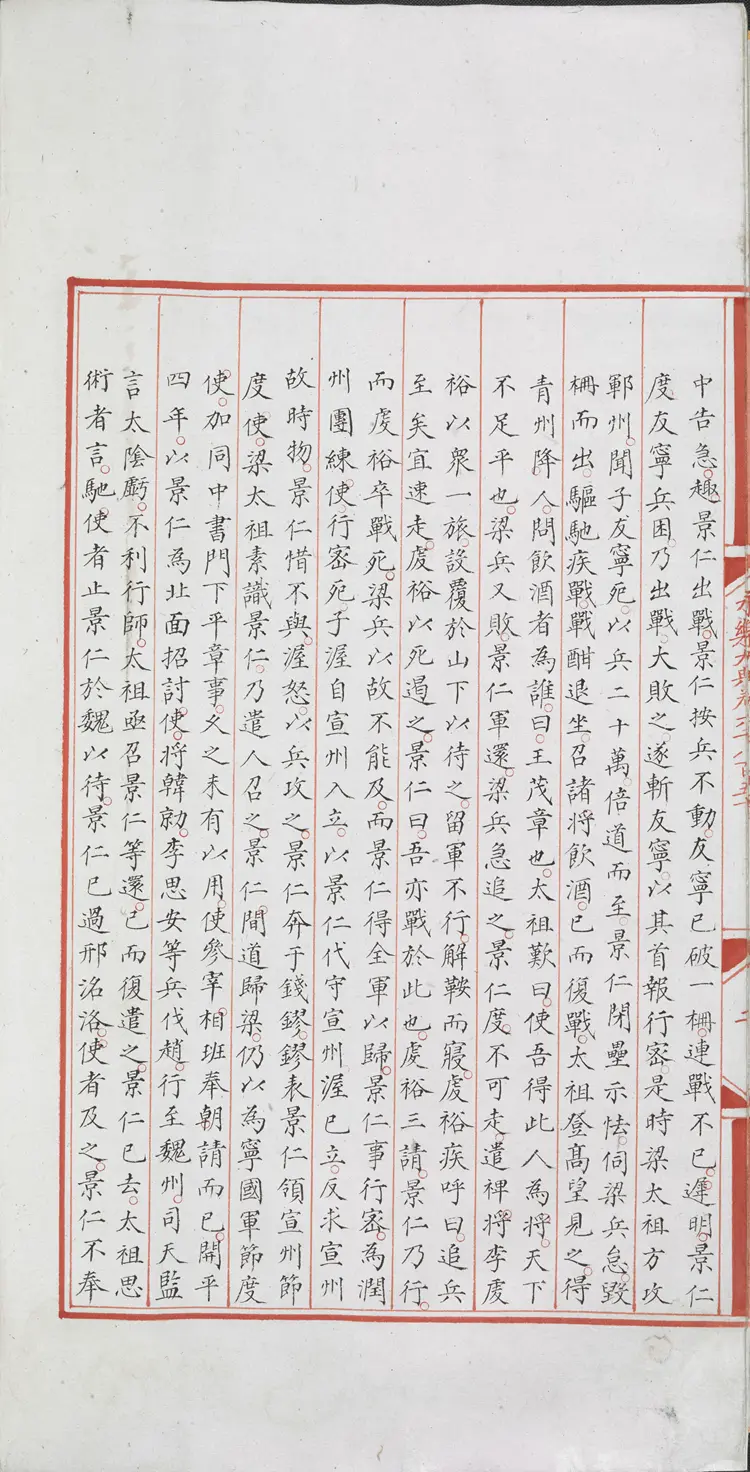 中告急趣景仁出戰景仁按兵不動友寧已破一柵連戰不已遲明景仁
度友寧兵困乃出戰大敗之遂斬友寧以其首報行密是時梁太祖方攻
鄆州聞子友寧死以兵二十萬倍道而至景仁閉壘示怯伺梁兵怠毀
柵而出驅馳疾戰戰酣退坐召諸將飲酒已而復戰太祖登高望見之得
青州降人問飲酒者為誰曰王茂章也太祖歎曰使吾得此人為將天下
不足平也梁兵又敗景仁軍還梁兵急追之景仁度不可走遣裨將李虔
裕以衆一旅設覆於山下以待之留軍不行解鞍而寢虔裕疾呼曰追兵
至矣宜速走虔裕以死遏之景仁曰吾亦戰於此也虔裕三請景仁乃行
而虔裕卒戰死梁兵以故不能及而景仁得全軍以歸景仁事行密為潤
州團練使行密死子渥自宣州入立以景仁代守宣州渥已立反求宣州
故時物景仁惜不與渥怒以兵攻之景仁奔于錢鏐鏐表景仁領宣州節
度使梁太祖素識景仁乃遣人召之景仁間道歸梁仍以為寧國軍節度
使加同中書門下平章事久之未有以用使參宰相班奉朝請而已開平
四年以景仁為北面招討使將韓勍李思安等兵伐趙行至魏州司天監
言太陰虧不利行師太祖亟召景仁等還已而復遣之景仁已去太祖思
術者言馳使者止景仁於魏以待景仁已過邢洺洛使者及之景仁不奉
二